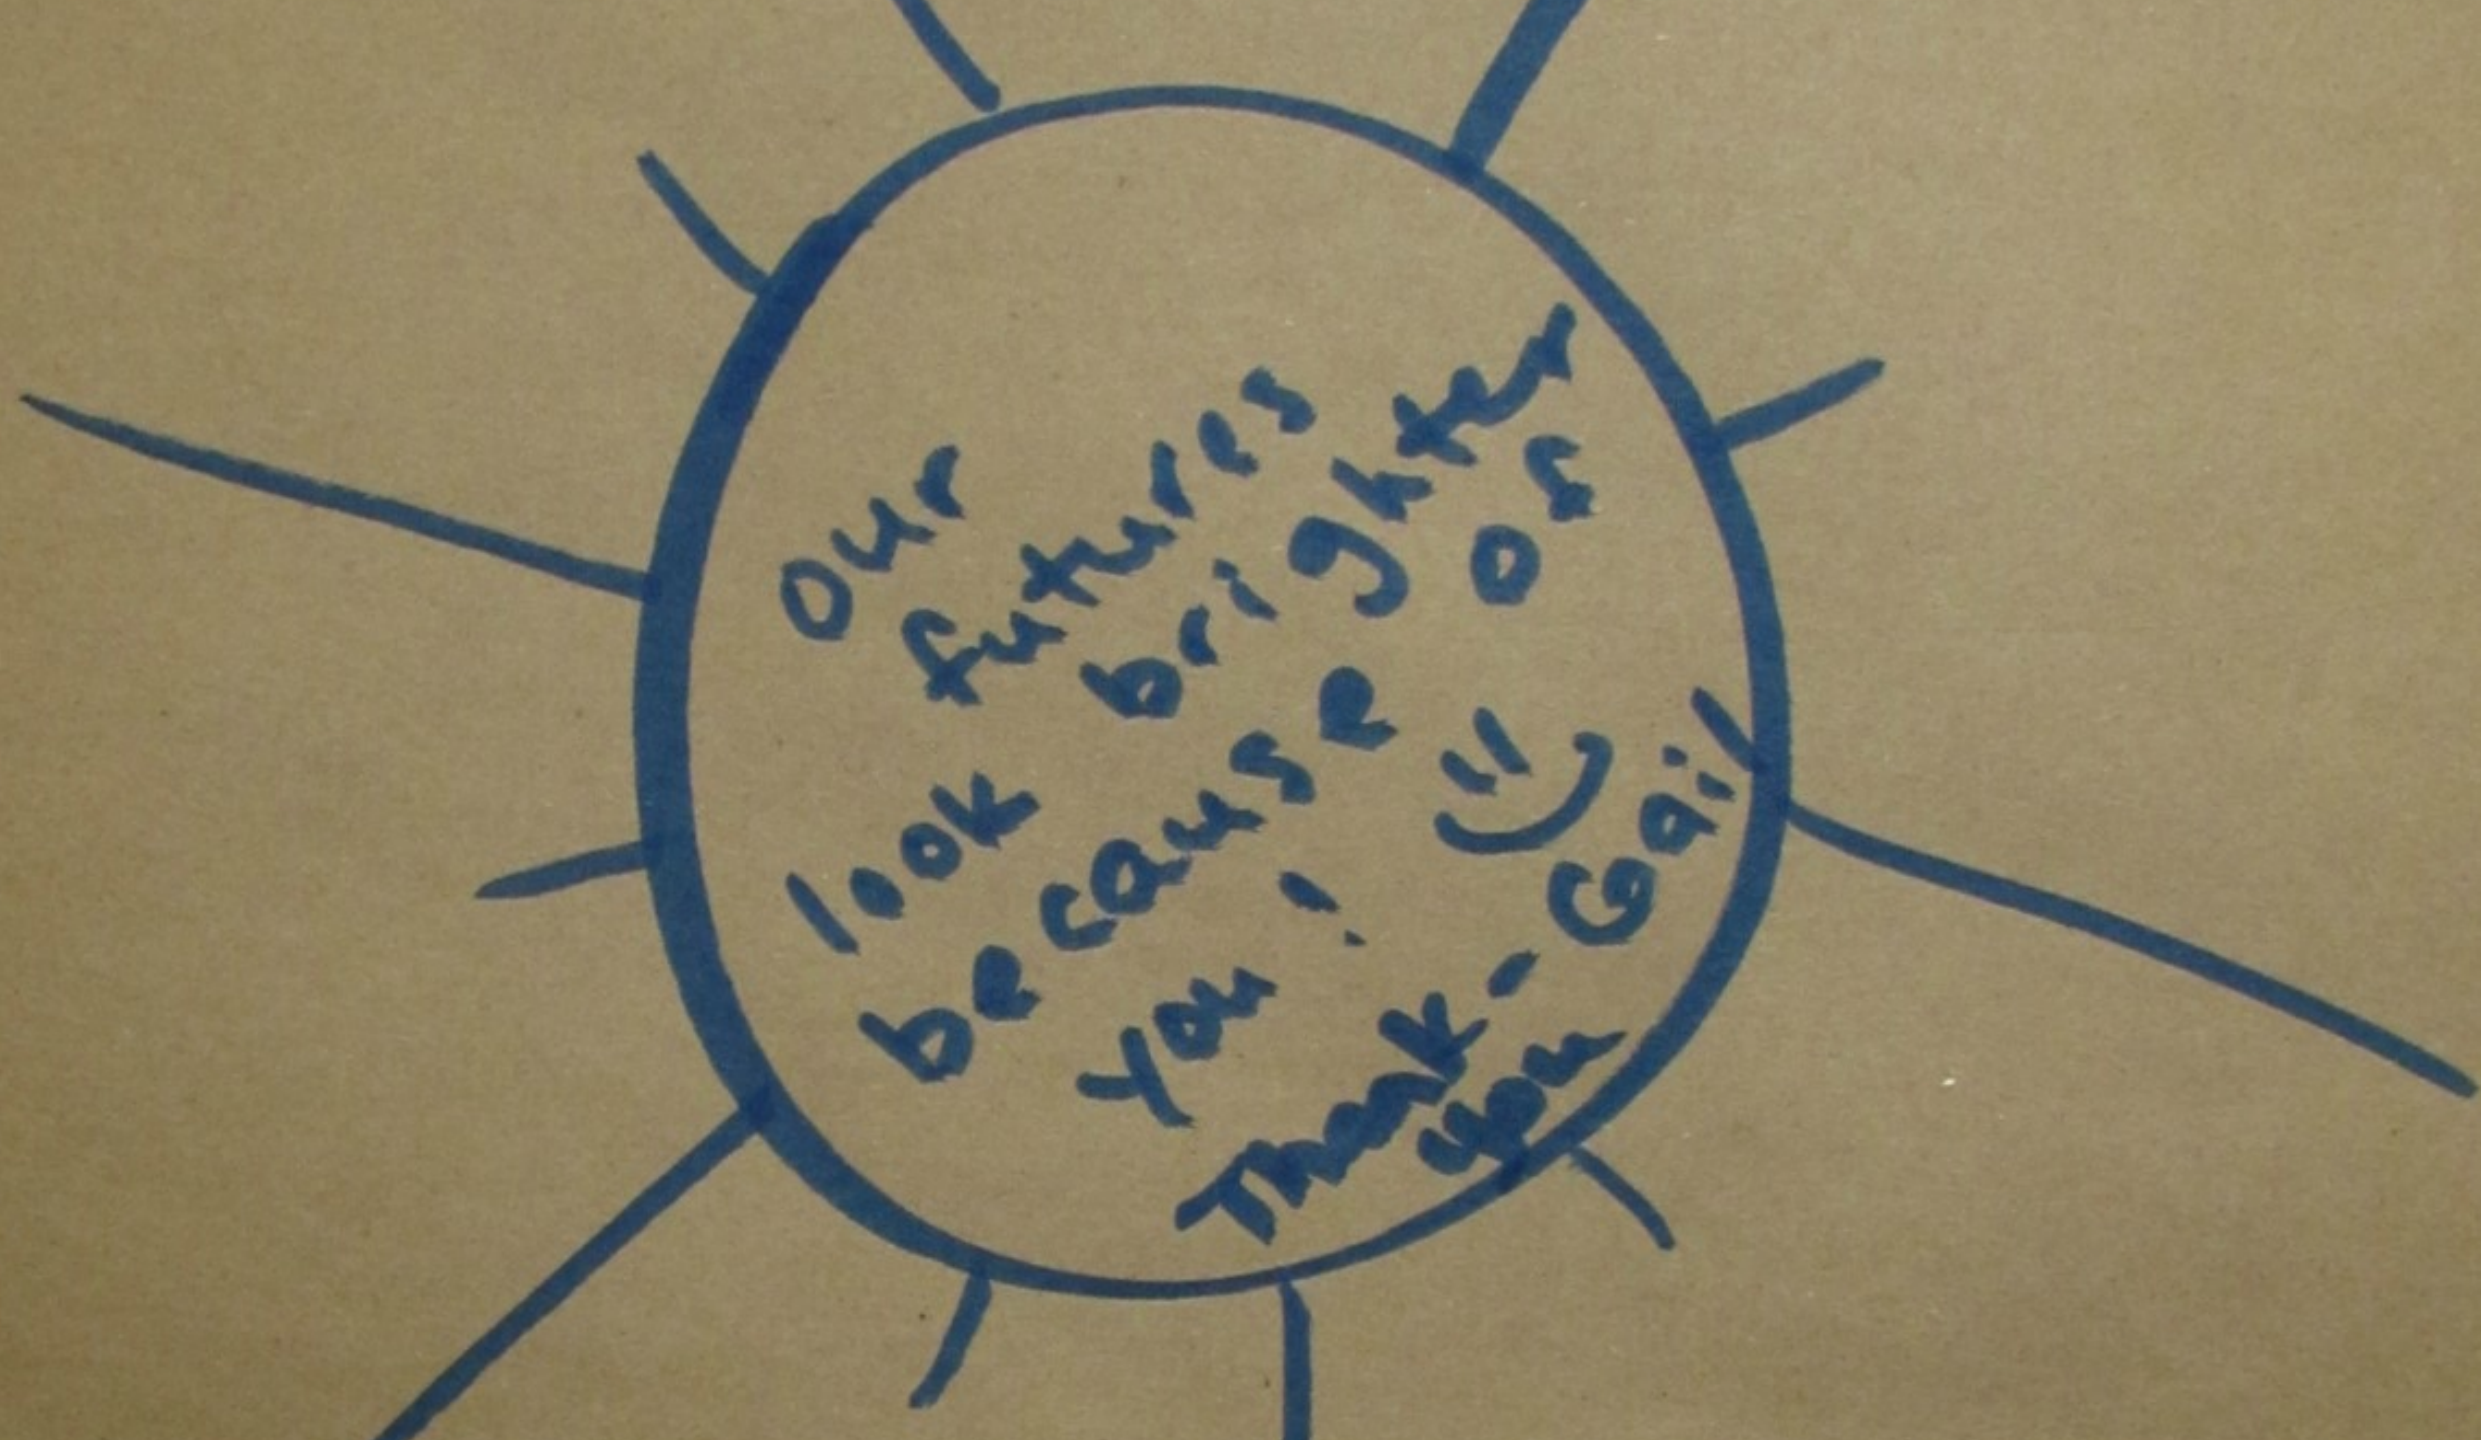 our
futures
look brighter
because of
you! 
- Gail
Thank
you